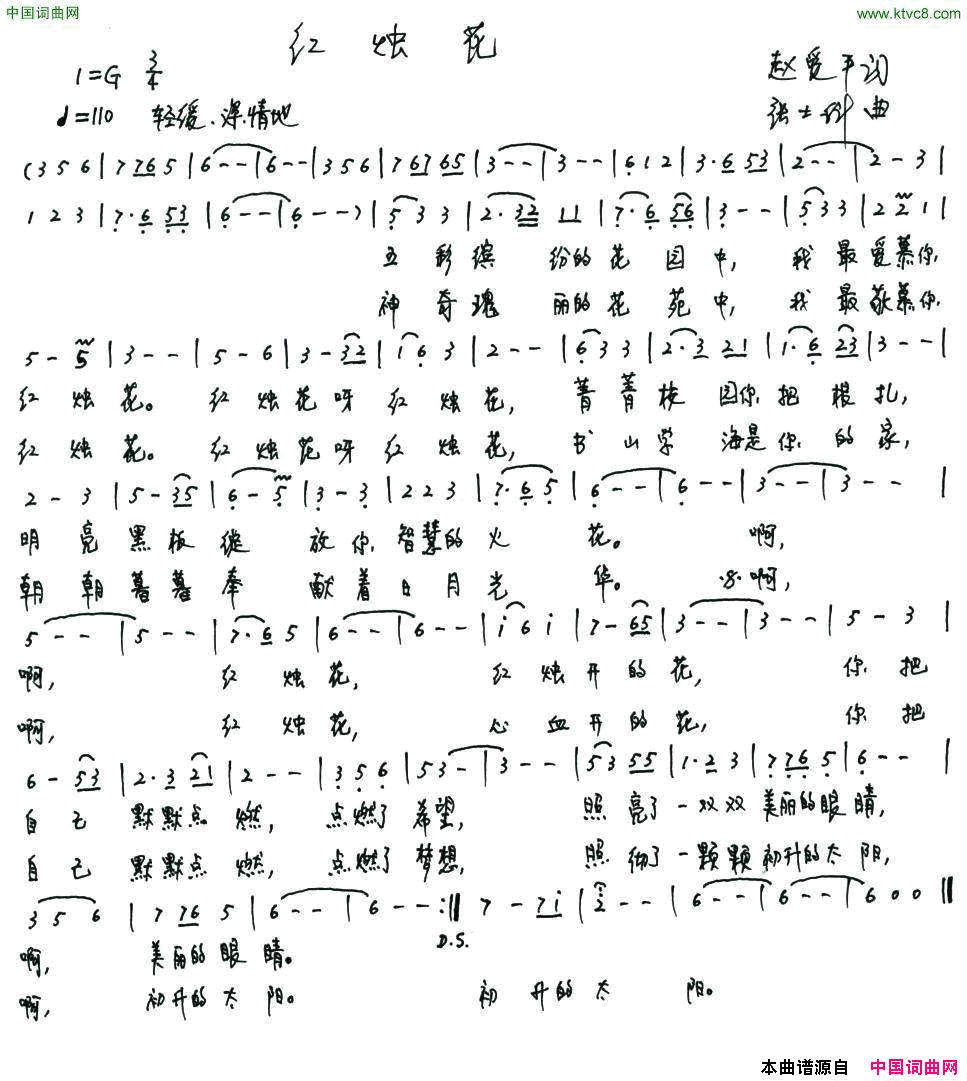 中国词曲网
www.ktvc8.com
红烛花
1=G 3/4
赵爱平词
♩=110 轻缓、深情地
曲
(3 5 6 | 7 76 5 | 6 - - | 6 - - | 3 5 6 | 7 67 65 | 3 - - | 3 - - | 6 1 2 | 3· 6 53 | 2 - - | 2 - 3 |
1 2 3 | 7· 6 53 | 6 - - | 6 - -) | 5 3 3 | 2· 32 11 | 7· 6 56 | 3 - - | 5 3 3 | 2 2 1 |
五彩缤 纷的花园中, 我最爱慕你
神奇瑰 丽的花苑中, 我最敬慕你
5 - 5 | 3 - - | 5 - 6 | 3 - 32 | 1 6 3 | 2 - - | 6 3 3 | 2· 3 21 | 1· 6 23 | 3 - - |
红烛花。 红烛花呀红烛花, 菁菁校园你把根扎,
红烛花。 红烛花呀红烛花, 书山学海是你的家,
2 - 3 | 5 - 35 | 6 - 5 | 3 - 3 | 2 2 3 | 7· 6 5 | 6 - - | 6 - - | 3 - - | 3 - - |
明亮黑板绽放你智慧的火花。 啊,
朝朝暮暮奉献着日月光华。 啊,
5 - - | 5 - - | 7· 6 5 | 6 - - | 6 - - | i 6 i | 7 - 65 | 3 - - | 3 - - | 5 - 3 |
啊, 红烛花, 红烛开的花, 你把
啊, 红烛花, 心血开的花, 你把
6 - 53 | 2· 3 21 | 2 - - | 3 5 6 | 53 - | 3 - - | 5 3 55 | 1· 2 3 | 7 76 5 | 6 - - |
自己默默点燃, 点燃了希望, 照亮了一双双美丽的眼睛,
自己默默点燃, 点燃了梦想, 照彻了一颗颗初升的太阳,
3 5 6 | 7 76 5 | 6 - - | 6 - - :‖ 7 - 7i | 2 - - | 6 - - | 6 - - | 6 0 0 ‖
D.S.
啊, 美丽的眼睛。
啊, 初升的太阳。 初升的太阳。
本曲谱源自 中国词曲网